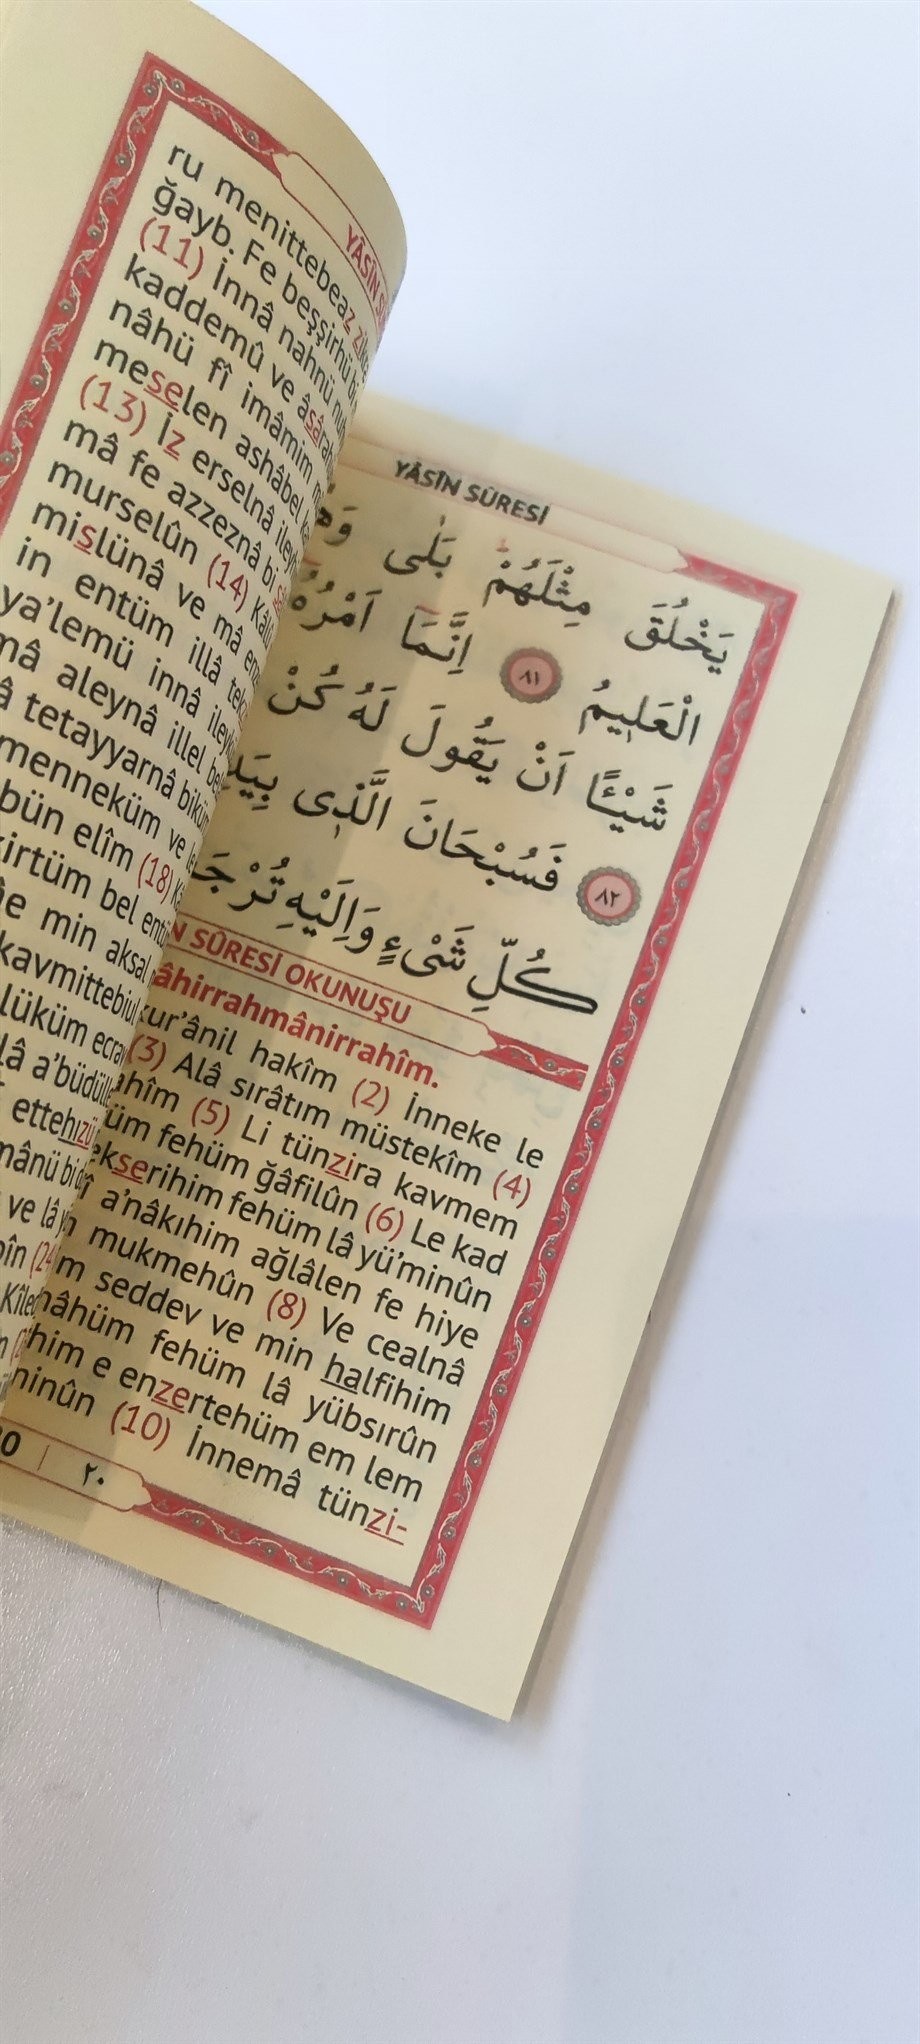 YÂSÎN SÛRESİ
يَخْلُقَ مِثْلَهُمْ بَلٰى
الْعَلِيمُ ٨١ اِنَّمَا اَمْرُهُ
شَيْـًٔا اَنْ يَقُولَ لَهُ كُنْ
٨٢ فَسُبْحَانَ الَّذِى بِيَدِ
كُلِّ شَىْءٍ وَاِلَيْهِ تُرْجَ
N SÛRESİ OKUNUŞU
âhirrahmânirrahîm.
kur’ânil hakîm (2) İnneke le
(3) Alâ sırâtım müstekîm (4)
ahîm (5) Li tünzira kavmem
üm fehüm ğâfilûn (6) Le kad
ekserihim fehüm lâ yü’minûn
î a’nâkıhim ağlâlen fe hiye
mukmehûn (8) Ve cealnâ
m seddev ve min halfihim
nâhüm fehüm lâ yübsırûn
him e enzertehüm em lem
minûn (10) İnnemâ tünzi-
٢٠
YÂSÎN SÛ
ru menittebeaz zi
ğayb. Fe beşşirhü bi
(11) İnnâ nahnü nu
kaddemû ve âsârah
nâhü fî imâmim m
meselen ashâbel
(13) İz erselnâ iley
mâ fe azzeznâ bi
murselûn (14) Kâlû
mislünâ ve mâ en
in entüm illâ tek
ya’lemü innâ iley
mâ aleynâ illel bel
â tetayyarnâ biküm
menneküm ve le
bün elîm (18) K
kirtüm bel entü
e min aksal
kavmittebiul
lüküm ecra
lâ a’büdülle
ettehızü
mânü bi
ve lâ
bîn (24
Kîled